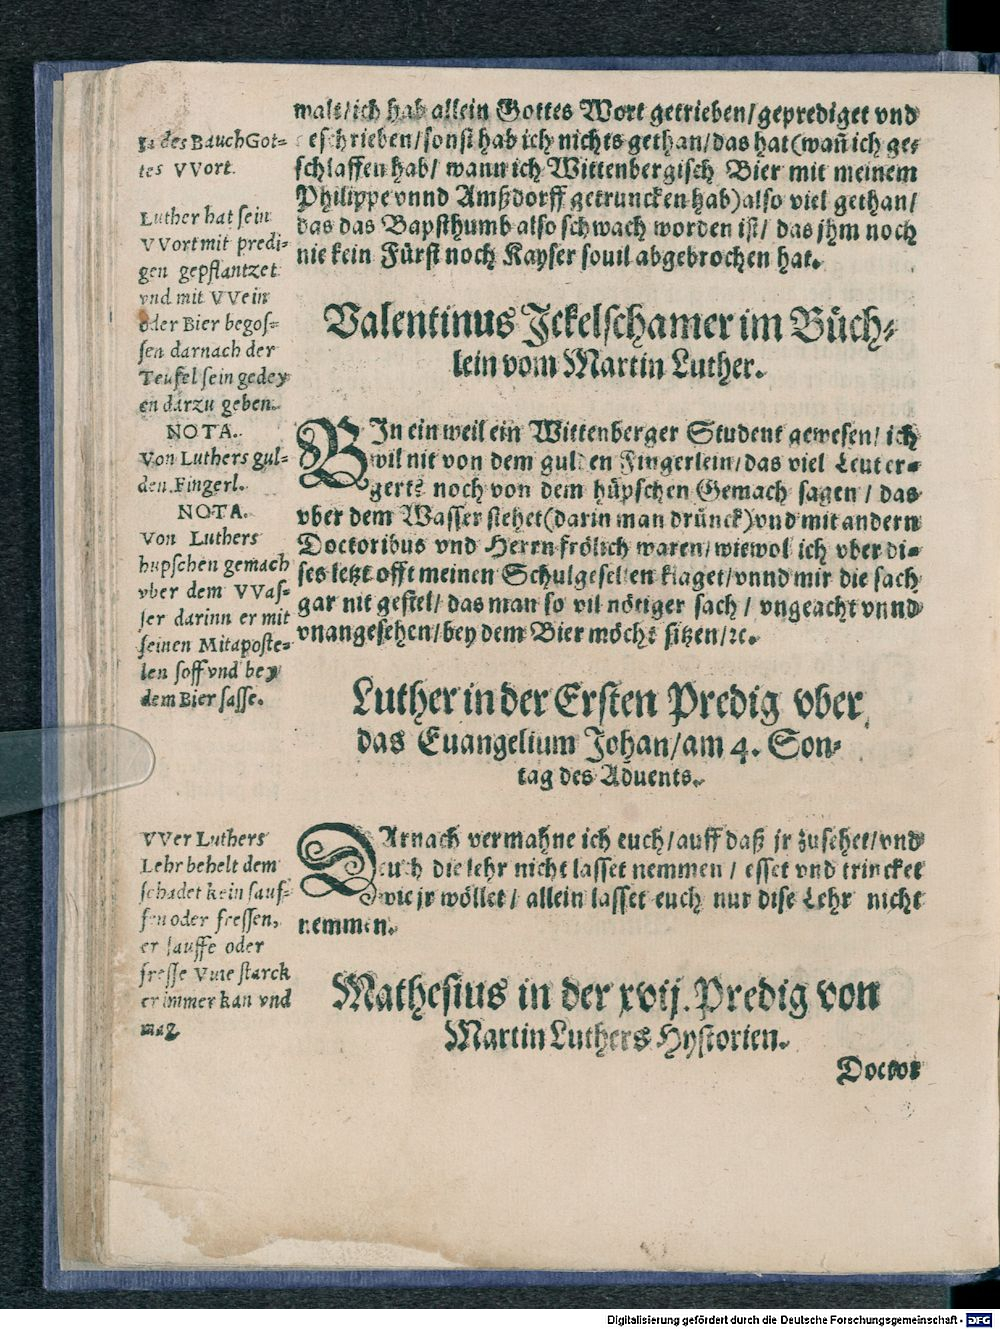 malt/ich hab allein Gottes Wort getrieben/geprediget vnd
geschrieben/sonst hab ich nichts gethan/das hat(wañ ich ge-
schlaffen hab/ wann ich Wittenbergisch Bier mit meinem
Philippe vnnd Amßdorff getruncken hab)also viel gethan/
das das Bapsthumb also schwach worden ist/ das jhm noch
nie kein Fürst noch Kayser souil abgebrochen hat.
Ja des Bauch Got-
tes VVort.
Luther hat sein
VVort mit predi-
gen gepflantzet
vnd mit VVein
oder Bier begos-
sen darnach der
Teufel sein gedey
en darzu geben.
Valentinus Ickelschamer im Büch-
lein vom Martin Luther.
BIn ein weil ein Wittenberger Student gewesen/ ich
wil nit von dem gulden Fingerlein/das viel Leut er-
gert/ noch von dem hüpschen Gemach sagen / das
vber dem Wasser stehet(darin man drünck)vnd mit andern
Doctoribus vnd Herrn frölich waren/wiewol ich vber di-
ses letzt offt meinen Schulgesellen klaget/vnnd mir die sach
gar nit gefiel/das man so vil nötiger sach / vngeacht vnnd
vnangesehen/bey dem Bier möcht sitzen/ꝛc.
NOTA.
Von Luthers gul-
den Fingerl.
NOTA.
Von Luthers
hupschen gemach
vber dem VVas-
ser darinn er mit
seinen Mitaposte-
len soff vnd bey
dem Bier sasse.
Luther in der Ersten Predig vber
das Euangelium Johan/am 4. Son-
tag des Aduents.
DArnach vermahne ich euch/auff daß jr zusehet/vnd
euch die lehr nicht lasset nemmen / esset vnd trincket
wie jr wöllet/ allein lasset euch nur dise Lehr nicht
nemmen.
VVer Luthers
Lehr behelt dem
schadet kein sauf-
fen oder fressen,
er sauffe oder
fresse vvie starck
er immer kan vnd
mag.
Mathesius in der xvij. Predig von
Martin Luthers Hystorien.
Doctor
Digitalisierung gefördert durch die Deutsche Forschungsgemeinschaft - DFG